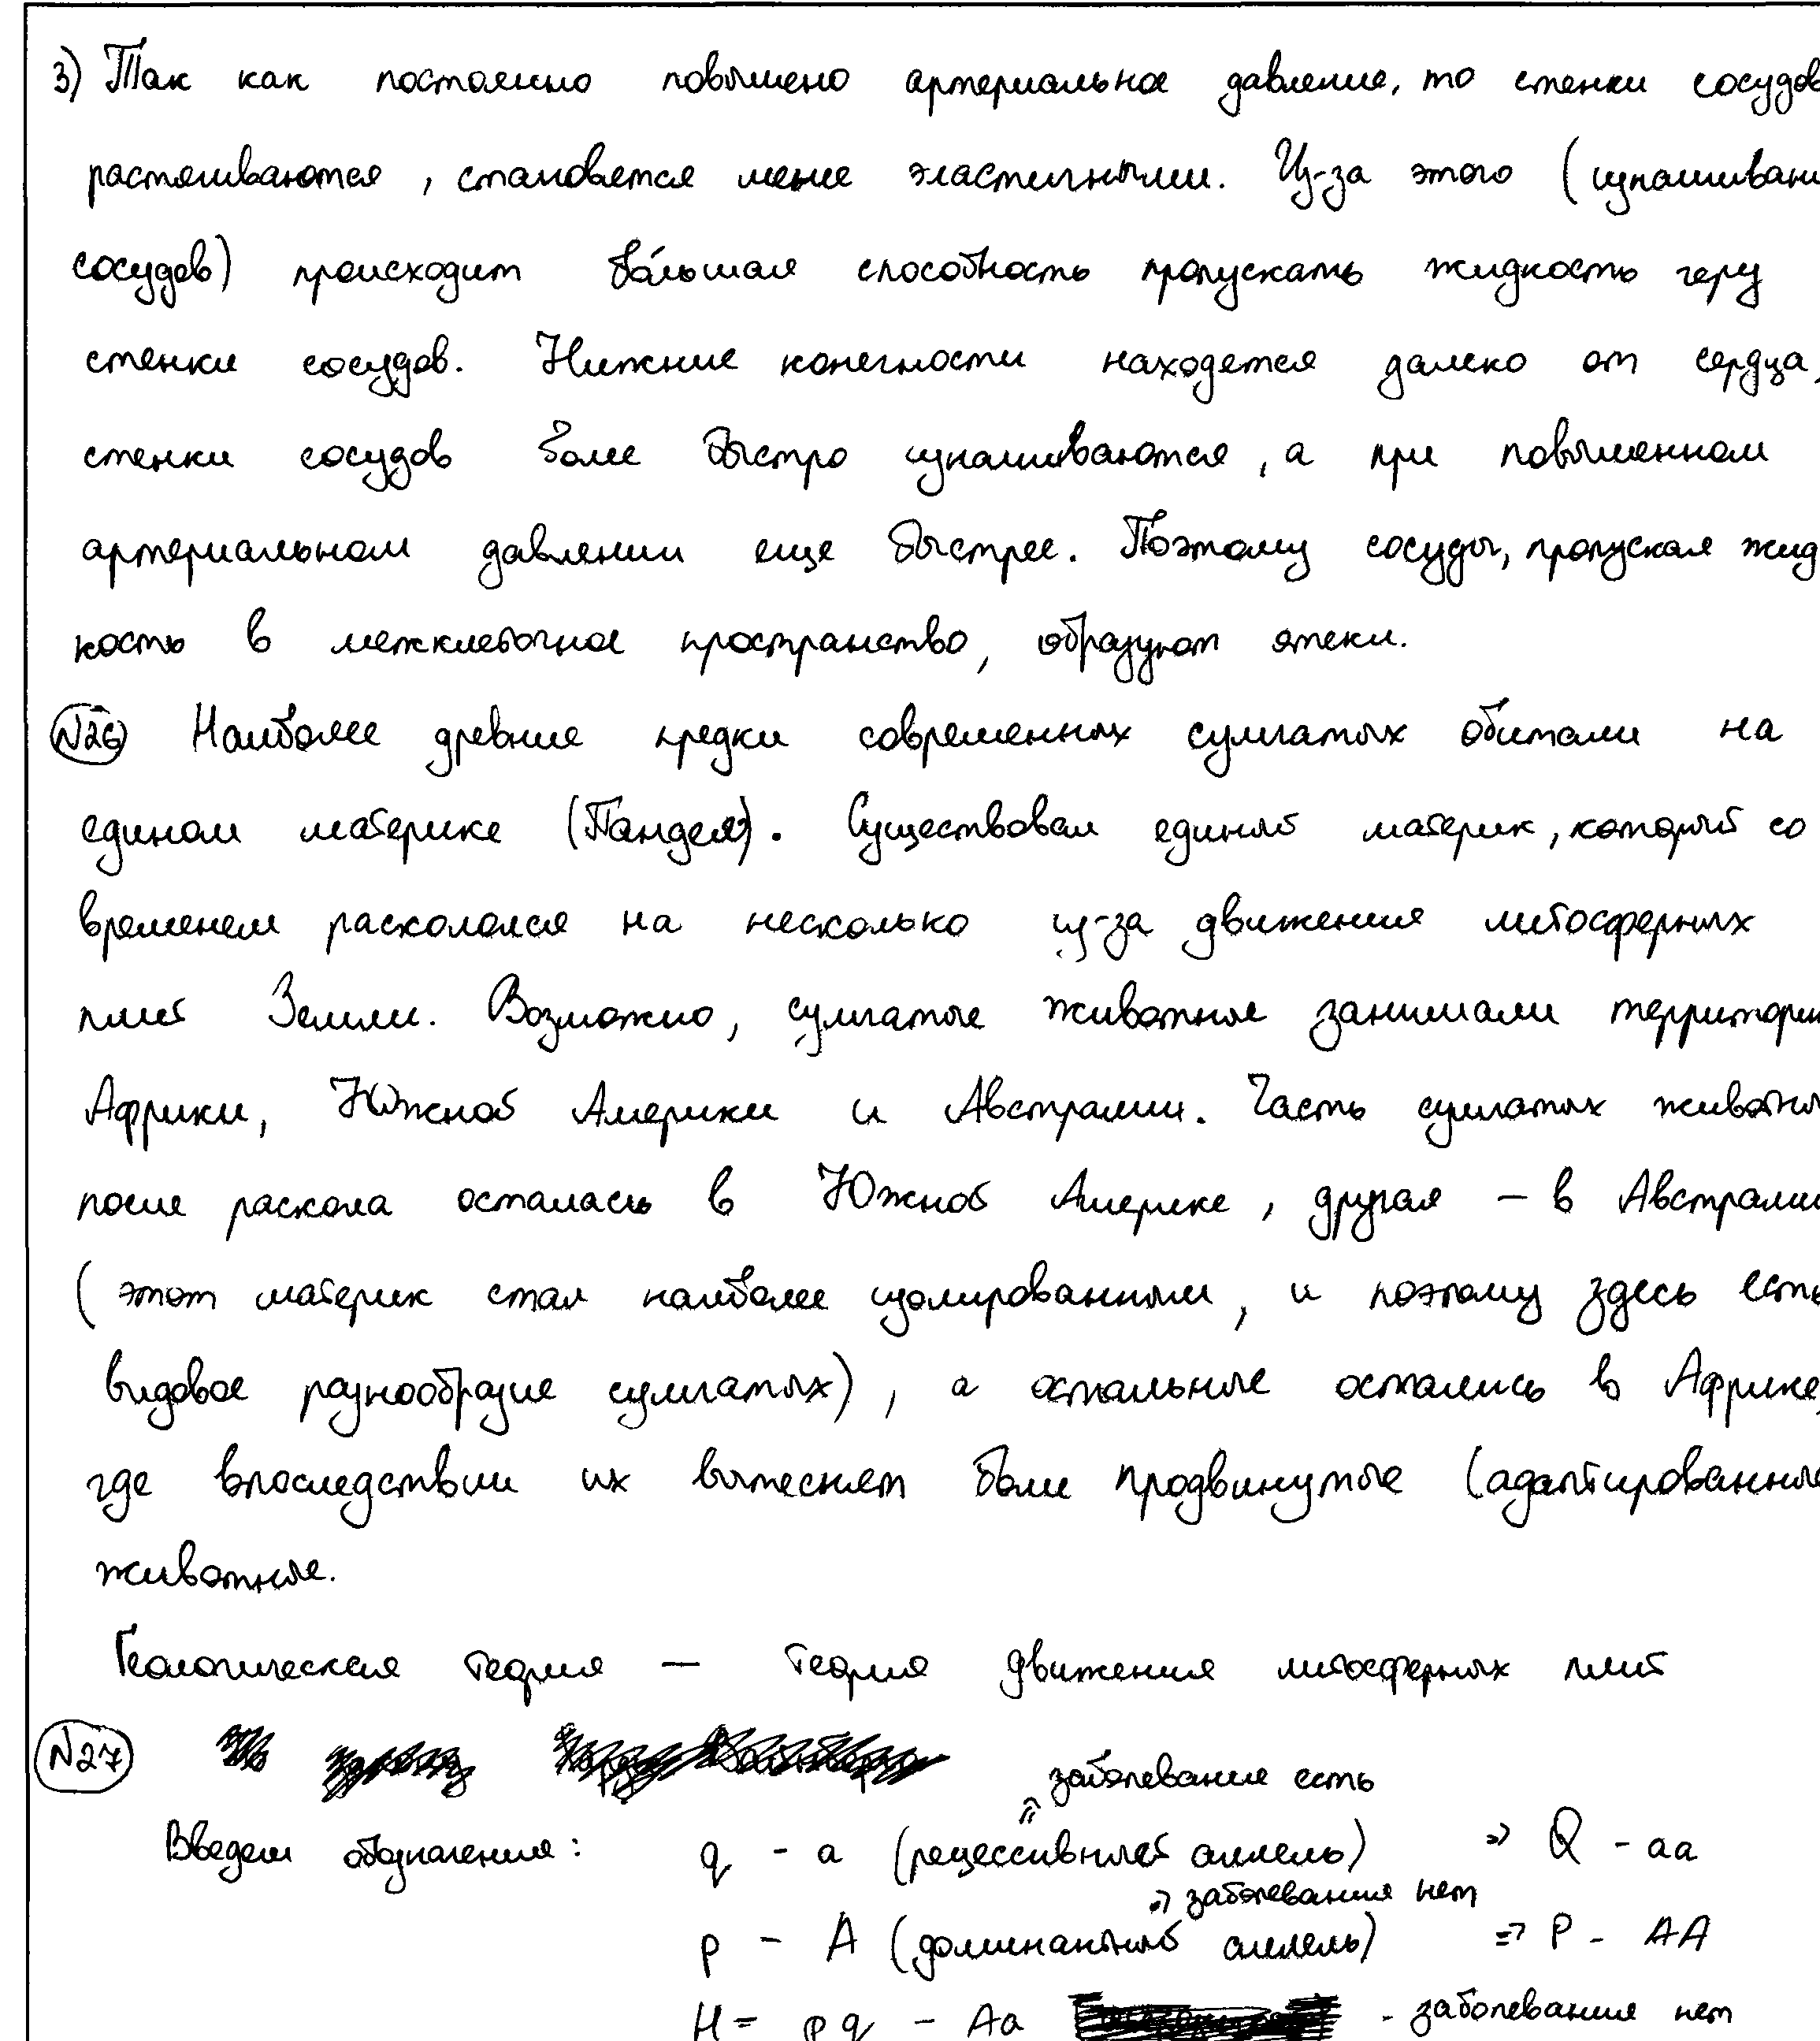 3) Так как постоянно повышено артериальное давление, то стенки сосудов
растягиваются, становятся менее эластичными. Из-за этого (изнашивани
сосудов) происходит бо́льшая способность пропускать жидкость через
стенки сосудов. Нижние конечности находятся далеко от сердца,
стенки сосудов более быстро изнашиваются, а при повышенном
артериальном давлении еще быстрее. Поэтому сосуды, пропуская жид
кость в межклеточное пространство, образуют отеки.
N26 Наиболее древние предки современных сумчатых обитали на
едином материке (Пандея). Существовал единый материк, который со
временем раскололся на несколько из-за движения литосферных
плит Земли. Возможно, сумчатые животные занимали территори
Африки, Южной Америки и Австралии. Часть сумчатых животны
после раскола осталась в Южной Америке, другая - в Австралии
(этот материк стал наиболее изолированным, и поэтому здесь есть
видовое разнообразие сумчатых), а остальные остались в Африке,
где впоследствии их вытеснят более продвинутые (адаптированные
животные.
Геологическая теория — теория движения литосферных плит
N27
заболевание есть
Введем обозначения: q - a (рецессивный аллель) => Q - aa
=> заболевания нет
p - A (доминантный аллель) => P - AA
H = pq - Aa - заболевания нет